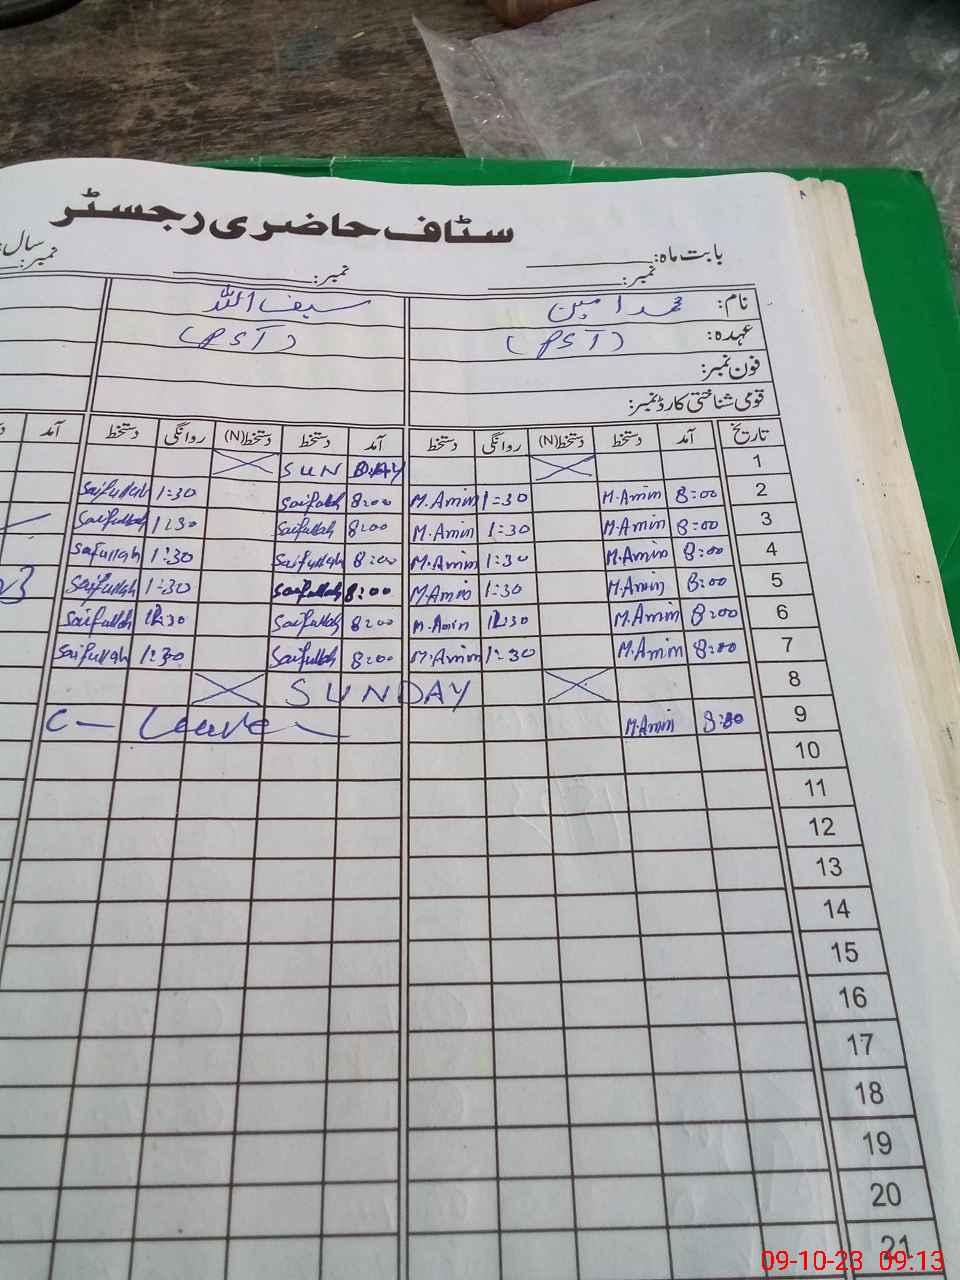 سٹاف حاضری رجسٹر
بابت ماہ: سال:
نمبر: نمبر: نمبر:
نام: محمد امین سیف اللہ
عہدہ: (PST) (PST)
فون نمبر:
قومی شناختی کارڈ نمبر:
تاریخ آمد دستخط دستخط(N) روانگی دستخط آمد دستخط دستخط(N) روانگی دستخط آمد
1 SUNDAY
2 8:00 M.Amin 1:30 M.Amin 8:00 Saifullah 1:30 Saifullah
3 8:00 M.Amin 1:30 M.Amin 8:00 Saifullah 1:30 Saifullah
4 8:00 M.Amin 1:30 M.Amin 8:00 Saifullah 1:30 Saifullah
5 8:00 M.Amin 1:30 M.Amin 8:00 Saifullah 1:30 Saifullah
6 8:00 M.Amin 12:30 M.Amin 8:00 Saifullah 12:30 Saifullah
7 8:00 M.Amin 1:30 M.Amin 8:00 Saifullah 1:30 Saifullah
8 SUNDAY
9 8:00 M.Amin C-Leave
10
11
12
13
14
15
16
17
18
19
20
21
09-10-23 09:13